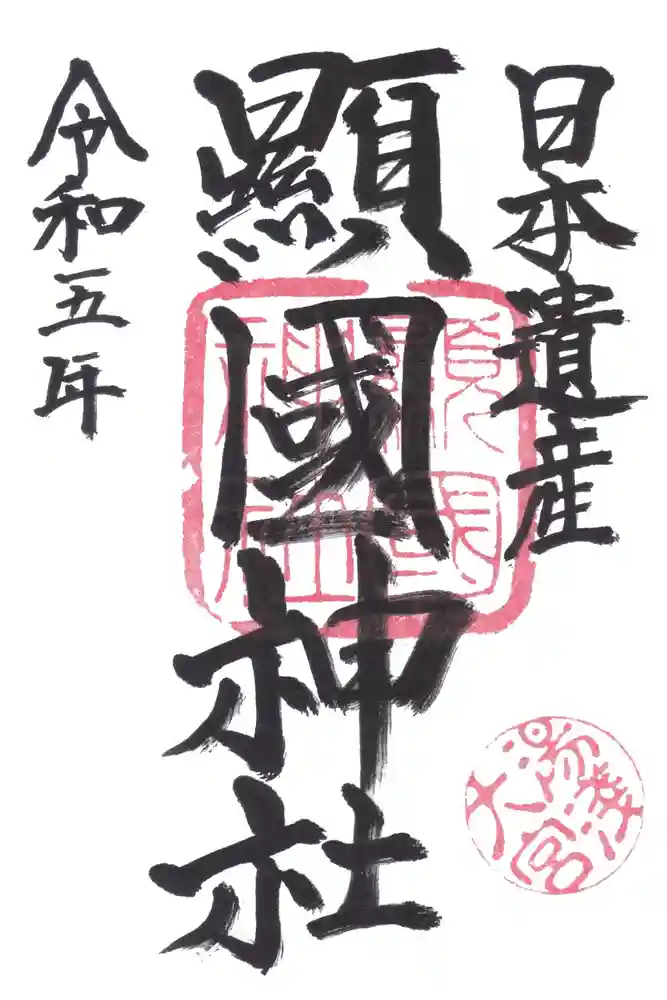 日本遺産
顯國神社
令和五年
顯國神社